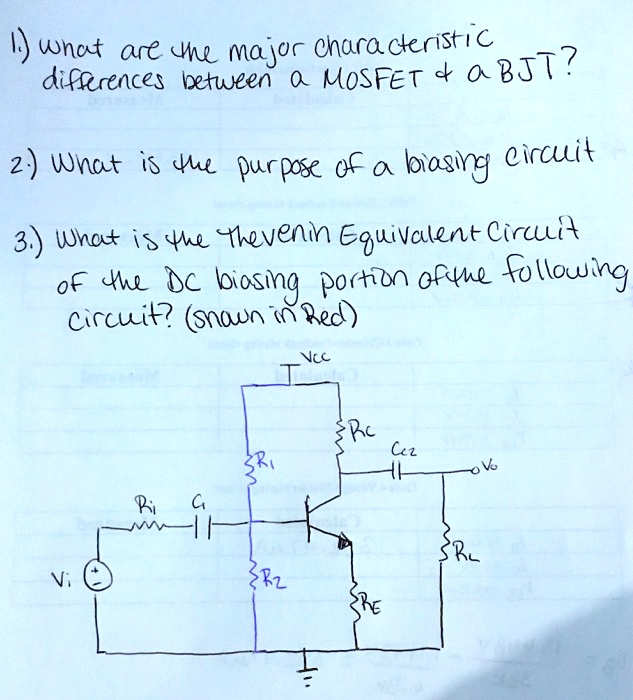 1.) What are the major characteristic
differences between a MOSFET & a BJT?
2.) What is the purpose of a biasing circuit
3.) What is the Thevenin Equivalent Circuit
of the DC biasing portion of the following
circuit? (shown in Red)
Vcc
Rc
Cc2
R1
Vo
Ri
C1
RL
Vi
R2
RE